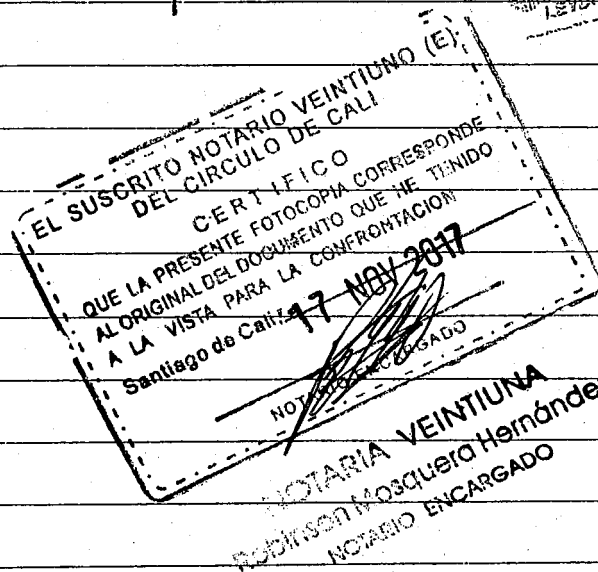 EL SUSCRITO NOTARIO VEINTIUNO (E)
DEL CIRCULO DE CALI
CERTIFICO
QUE LA PRESENTE FOTOCOPIA CORRESPONDE
AL ORIGINAL DEL DOCUMENTO QUE HE TENIDO
A LA VISTA PARA LA CONFRONTACION
Santiago de Cali, 17 NOV 2017
NOTARIO ENCARGADO
NOTARIA VEINTIUNA
Robinson Mosquera Hernánde
NOTARIO ENCARGADO